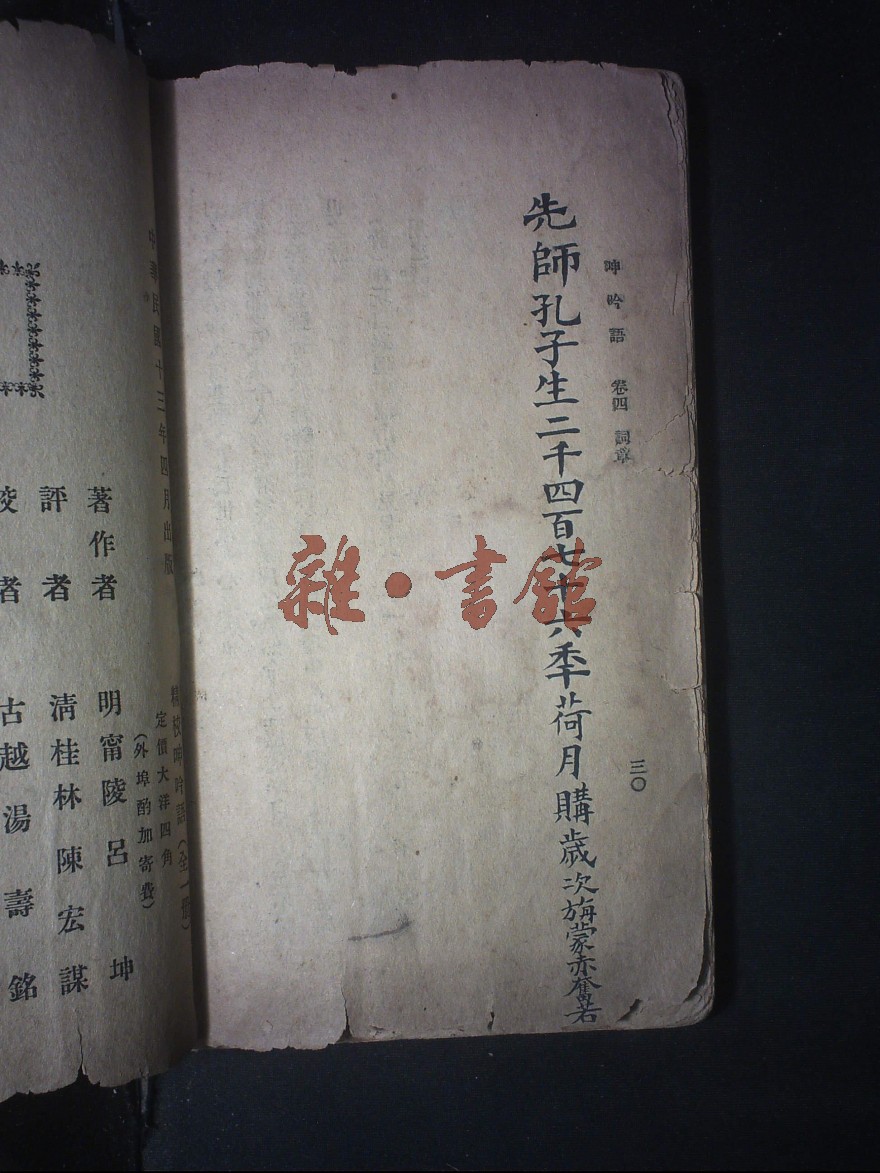 呻吟語 卷四 詞章
三〇
先師孔子生二千四百七十六季荷月購歲次旃蒙赤奮若
雜·書館
中華民國十三年四月出版
精校呻吟語(全一冊)
定價大洋四角
(外埠酌加寄費)
著作者 明甯陵呂坤
評者 清桂林陳宏謀
校者 古越湯壽銘